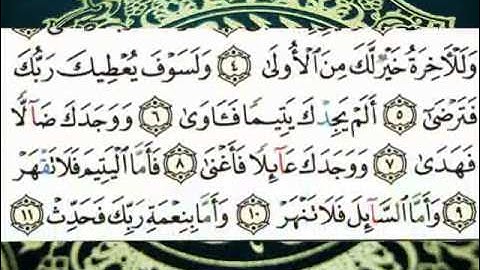 وَلَلْـَٔاخِرَةُ خَيْرٌ لَّكَ مِنَ ٱلْأُولَىٰ ٤ وَلَسَوْفَ يُعْطِيكَ رَبُّكَ
فَتَرْضَىٰٓ ٥ أَلَمْ يَجِدْكَ يَتِيمًا فَـَٔاوَىٰ ٦ وَوَجَدَكَ ضَآلًّا
فَهَدَىٰ ٧ وَوَجَدَكَ عَآئِلًا فَأَغْنَىٰ ٨ فَأَمَّا ٱلْيَتِيمَ فَلَا تَقْهَرْ
٩ وَأَمَّا ٱلسَّآئِلَ فَلَا تَنْهَرْ ١٠ وَأَمَّا بِنِعْمَةِ رَبِّكَ فَحَدِّثْ ١١